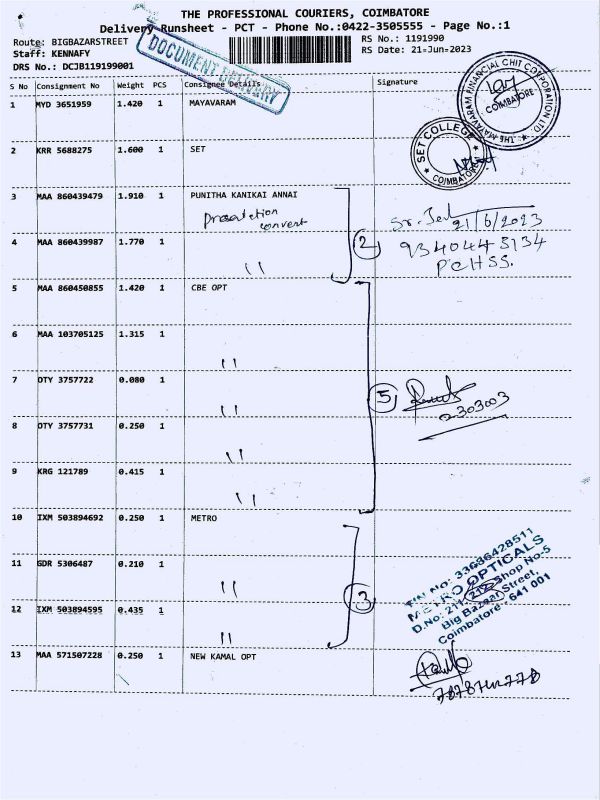 THE PROFESSIONAL COURIERS, COIMBATORE
Delivery Runsheet - PCT - Phone No.:0422-3505555 - Page No.:1
Route: BIGBAZARSTREET
RS No.: 1191990
Staff: KENNAFY
RS Date: 21-Jun-2023
DRS No.: DCJB119199001
DOCUMENT DELIVERY
S No Consignment No Weight PCS Consignee Details Signature
1 MYD 3651959 1.420 1 MAYAVARAM
THE MAYAVARAM FINANCIAL CHIT CORPORATION LTD
COIMBATORE
2 KRR 5688275 1.600 1 SET
SET COLLEGE
COIMBATORE
3 MAA 860439479 1.910 1 PUNITHA KANIKAI ANNAI
convent
21/6/2023
4 MAA 860439987 1.770 1 "
2
9340443134
PCHSS.
5 MAA 860450855 1.420 1 CBE OPT
6 MAA 103705125 1.315 1 "
7 OTY 3757722 0.080 1 "
5
8 OTY 3757731 0.250 1 "
9 KRG 121789 0.415 1 "
10 IXM 503894692 0.250 1 METRO
11 GDR 5306487 0.210 1 "
3
TIN No: 33686428511
METRO OPTICALS
D.No: 211, 212, Shop No-5
Big Bazaar Street,
Coimbatore - 641 001
12 IXM 503894595 0.435 1 "
13 MAA 571507228 0.250 1 NEW KAMAL OPT